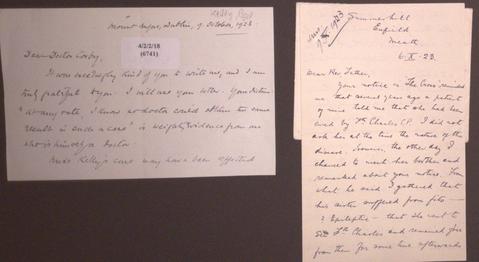 Kitty Pood
Mount Argus, Dublin, 9. October, 1923.
4/2/2/18
(6741)
Dear Doctor Cowby,
It was exceedingly kind of you to write me, and I am
truly grateful to you. I will use your letter. Your dictum
"at any rate, I know no doctor could obtain the same
result in such a case" is weighty evidence from one
who is himself a Doctor.
Miss Kelly's cure may have been effected
Summerhill
Enfield
Meath
6-X-23.
Dear Rev Father,
Your notice in The Cross reminded
me that several years ago a patient
of mine told me that she had been
cured by Fr Charles C.P. I did not
ask her at the time the nature of the
disease. However, the other day I
chanced to meet her brother and
remarked about your notice. From
what he said I gathered that
his sister suffered from fits —
? Epileptic — that she went to
Fr Charles and remained free
from them for some time afterwards